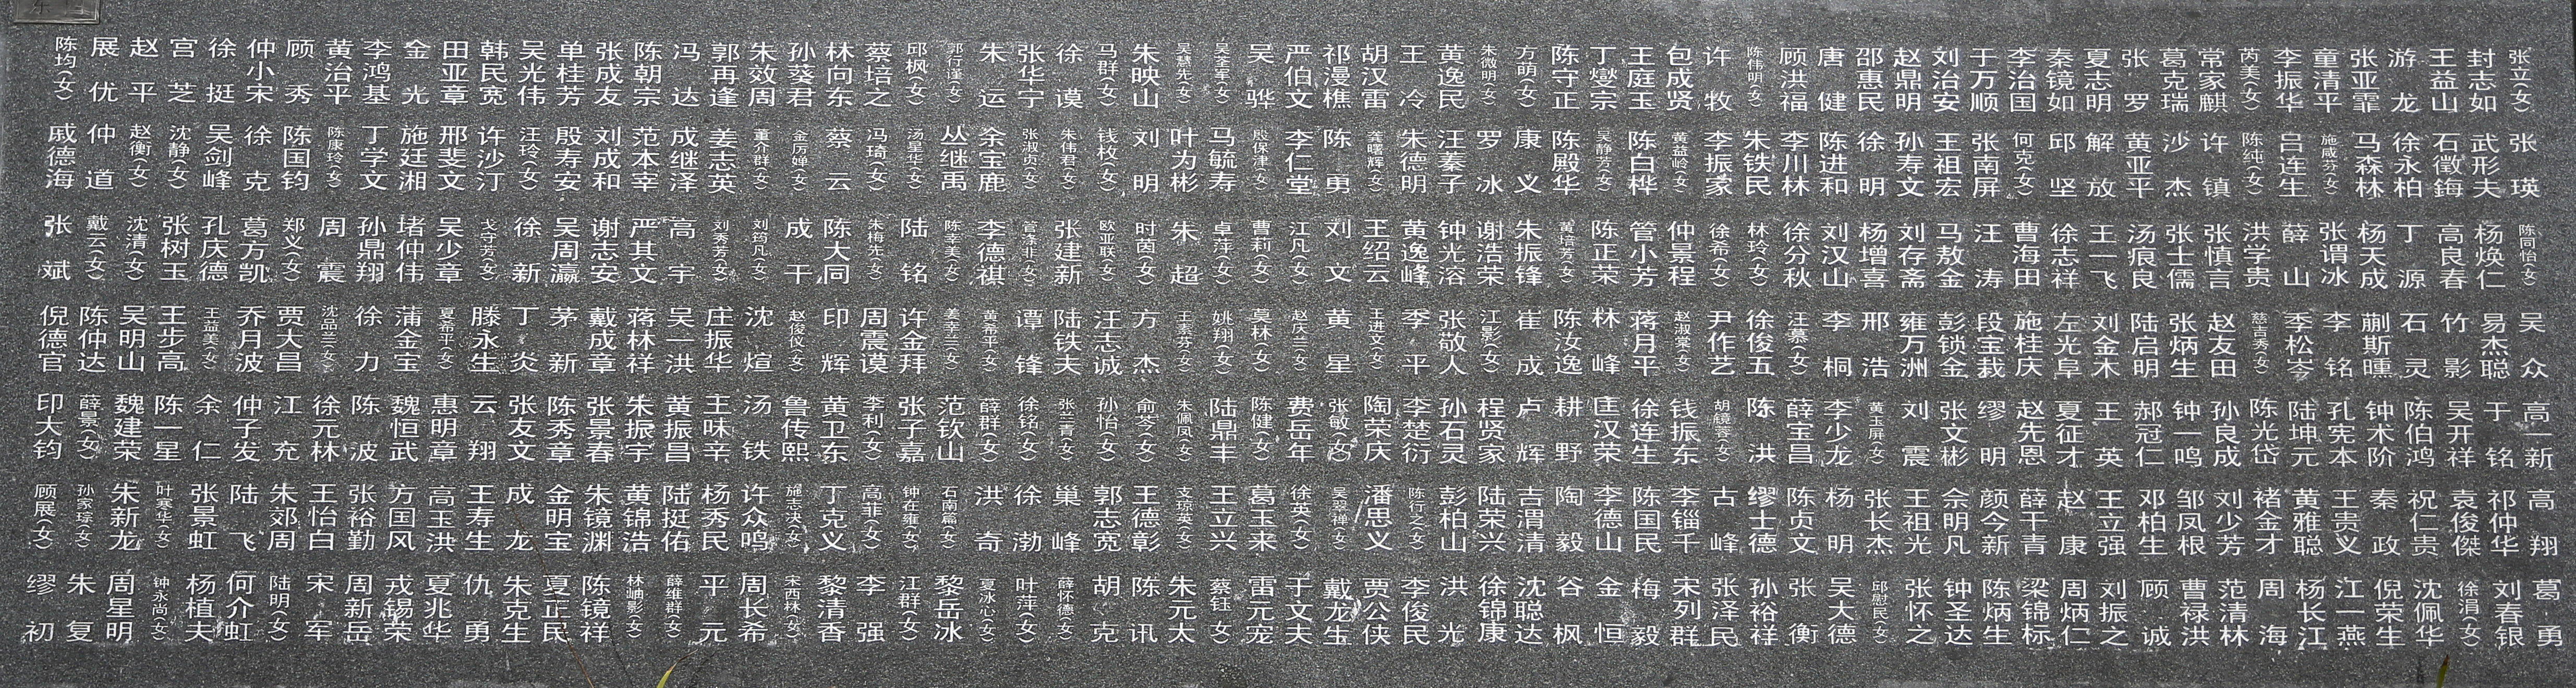 陈均(女) 展优 赵平 宫芝 徐挺 仲小宋 顾秀 黄治平 李鸿基 金光 田亚章 韩民宽 吴光伟 单桂芳 张成友 陈朝宗 冯达 郭再逢 朱效周 孙葵君 林向东 蔡培之 邱枫(女) 郭行谨(女) 朱运 张华宁 徐谟 马群(女) 朱映山 吴慧先(女) 吴荃军(女) 吴骅 严伯文 祁漫樵 胡汉雷 王冷 黄逸民 朱微明(女) 方萌(女) 陈守正 丁燮宗 王庭玉 包成贤 许牧 陈伟明(女) 顾洪福 唐健 邵惠民 赵鼎明 刘治安 于万顺 李治国 秦镜如 夏志明 张罗 葛克瑞 常家麒 芮美(女) 李振华 童清平 张亚霏 游龙 王益山 封志如 张立(女)
戚德海 仲道 赵衡(女) 沈静(女) 吴剑峰 徐克 陈国钧 陈康玲(女) 丁学文 施廷湘 邢斐文 许沙汀 汪玲(女) 殷寿安 刘成和 范本宰 成继泽 姜志英 董介群(女) 金厉婵(女) 蔡云 冯琦(女) 汤星华(女) 丛继禹 余宝鹿 张淑贞(女) 朱伟君(女) 钱枚(女) 刘明 叶为彬 马毓寿 殷保津(女) 李仁堂 陈勇 龚曙辉(女) 朱德明 汪蓁子 罗冰 康义 陈殿华 吴静芳(女) 陈白桦 黄益岭(女) 李振家 朱铁民 李川林 陈进和 徐明 孙寿文 王祖宏 张南屏 何克(女) 邱坚 解放 黄亚平 沙杰 许镇 陈纯(女) 吕连生 施咸芬(女) 马森林 徐永柏 石徵鋂 武形夫 张瑛
张斌 戴云(女) 沈清(女) 张树玉 孔庆德 葛方凯 郑义(女) 周震 孙鼎翔 堵仲伟 吴少章 戈守芳(女) 徐新 吴周瀛 谢志安 严其文 高宇 刘秀芳(女) 刘筠凡(女) 成干 陈大同 朱梅先(女) 陆铭 陈幸美(女) 李德祺 管涤非(女) 张建新 欧亚联(女) 时茵(女) 朱超 卓萍(女) 曹莉(女) 江凡(女) 刘文 王绍云 黄逸峰 钟光溶 谢浩荣 朱振锋 黄培芳(女) 陈正荣 管小芳 仲景程 徐希(女) 林玲(女) 徐分秋 刘汉山 杨增喜 刘存斋 马敖金 汪涛 曹海田 徐志祥 王一飞 汤痕良 张士儒 张慎言 洪学贵 薛山 张谓冰 杨天成 丁源 高良春 杨焕仁 陈同怡(女)
倪德官 陈仲达 吴明山 王步高 王益美(女) 乔月波 贾大昌 沈品兰(女) 徐力 蒲金宝 夏希平(女) 滕永生 丁炎 茅新 戴成章 蒋林祥 吴一洪 庄振华 沈煊 赵俊仪(女) 印辉 周震谟 许金拜 姜幸兰(女) 黄希平(女) 谭锋 陆铁夫 汪志诚 方杰 王素芬(女) 姚翔(女) 莫林(女) 赵庆兰(女) 黄星 王进文(女) 李平 张敬人 江影(女) 崔成 陈汝逸 林峰 蒋月平 赵淑棠(女) 尹作艺 徐俊五 汪慕(女) 李桐 邢浩 雍万洲 彭锁金 段宝莪 施桂庆 左光阜 刘金木 陆启明 张炳生 赵友田 慈吉秀(女) 季松岑 李铭 蒯斯曛 石灵 竹影 易杰聪 吴众
印大钧 薛景(女) 魏建荣 陈一星 余仁 仲子发 江充 徐元林 陈波 魏恒武 惠明章 云翔 张友文 陈秀章 张景春 朱振宇 黄振昌 王味辛 汤铁 鲁传熙 黄卫东 李利(女) 张子嘉 范钦山 薛群(女) 徐铭(女) 张兰青(女) 孙怡(女) 俞岑(女) 朱佩凤(女) 陆鼎丰 陈健(女) 费岳年 张敏(女) 陶荣庆 李楚衍 孙石灵 程贤家 卢辉 耕野 匡汉荣 徐连生 钱振东 胡镜蓉(女) 陈洪 薛宝昌 李少龙 黄玉屏(女) 刘震 张文彬 缪明 赵先恩 夏征才 王英 郝冠仁 钟一鸣 孙良成 陈光岱 陆坤元 孔宪本 钟术阶 陈伯鸿 吴开祥 于铭 高一新
顾展(女) 孙家琮(女) 朱新龙 叶寒华(女) 张景虹 陆飞 朱郊周 王怡白 张裕勤 方国风 高玉洪 王寿生 成龙 金明宝 朱镜渊 黄锦浩 陆挺佑 杨秀民 许众鸣 施志决(女) 丁克义 高菲(女) 钟在雍(女) 石南篇(女) 洪奇 徐渤 巢峰 郭志宽 王德彰 支琼英(女) 王立兴 葛玉来 徐英(女) 吴翠禅(女) 潘思义 陈行之(女) 彭柏山 陆荣兴 吉渭清 陶毅 李德山 陈国民 李锱千 古峰 缪士德 陈贞文 杨明 张长杰 王祖光 佘明凡 颜今新 薛干青 赵康 王立强 邓柏生 邹凤根 刘少芳 褚金才 黄雅聪 王贵义 秦政 祝仁贵 袁俊傑 祁仲华 高翔
缪初 朱复 周星明 钟永尚(女) 杨植夫 何介虹 陆明(女) 宋军 周新岳 戎锡荣 夏兆华 仇勇 朱克生 夏正民 陈镜祥 林岫影(女) 薛维群(女) 平元 周长希 宋西林(女) 黎清香 李强 江群(女) 黎岳冰 夏冰心(女) 叶萍(女) 薛怀德(女) 胡克 陈讯 朱元太 蔡钰(女) 雷元宠 于文夫 戴龙生 贾公侠 李俊民 洪光 徐锦康 沈聪达 谷枫 金恒 梅毅 宋列群 张泽民 孙裕祥 张衡 吴大德 邱慰民(女) 张怀之 钟圣达 陈炳生 梁锦标 周炳仁 刘振之 顾诚 曹禄洪 范清林 周海 杨长江 江一燕 倪荣生 沈佩华 徐涓(女) 刘春银 葛勇